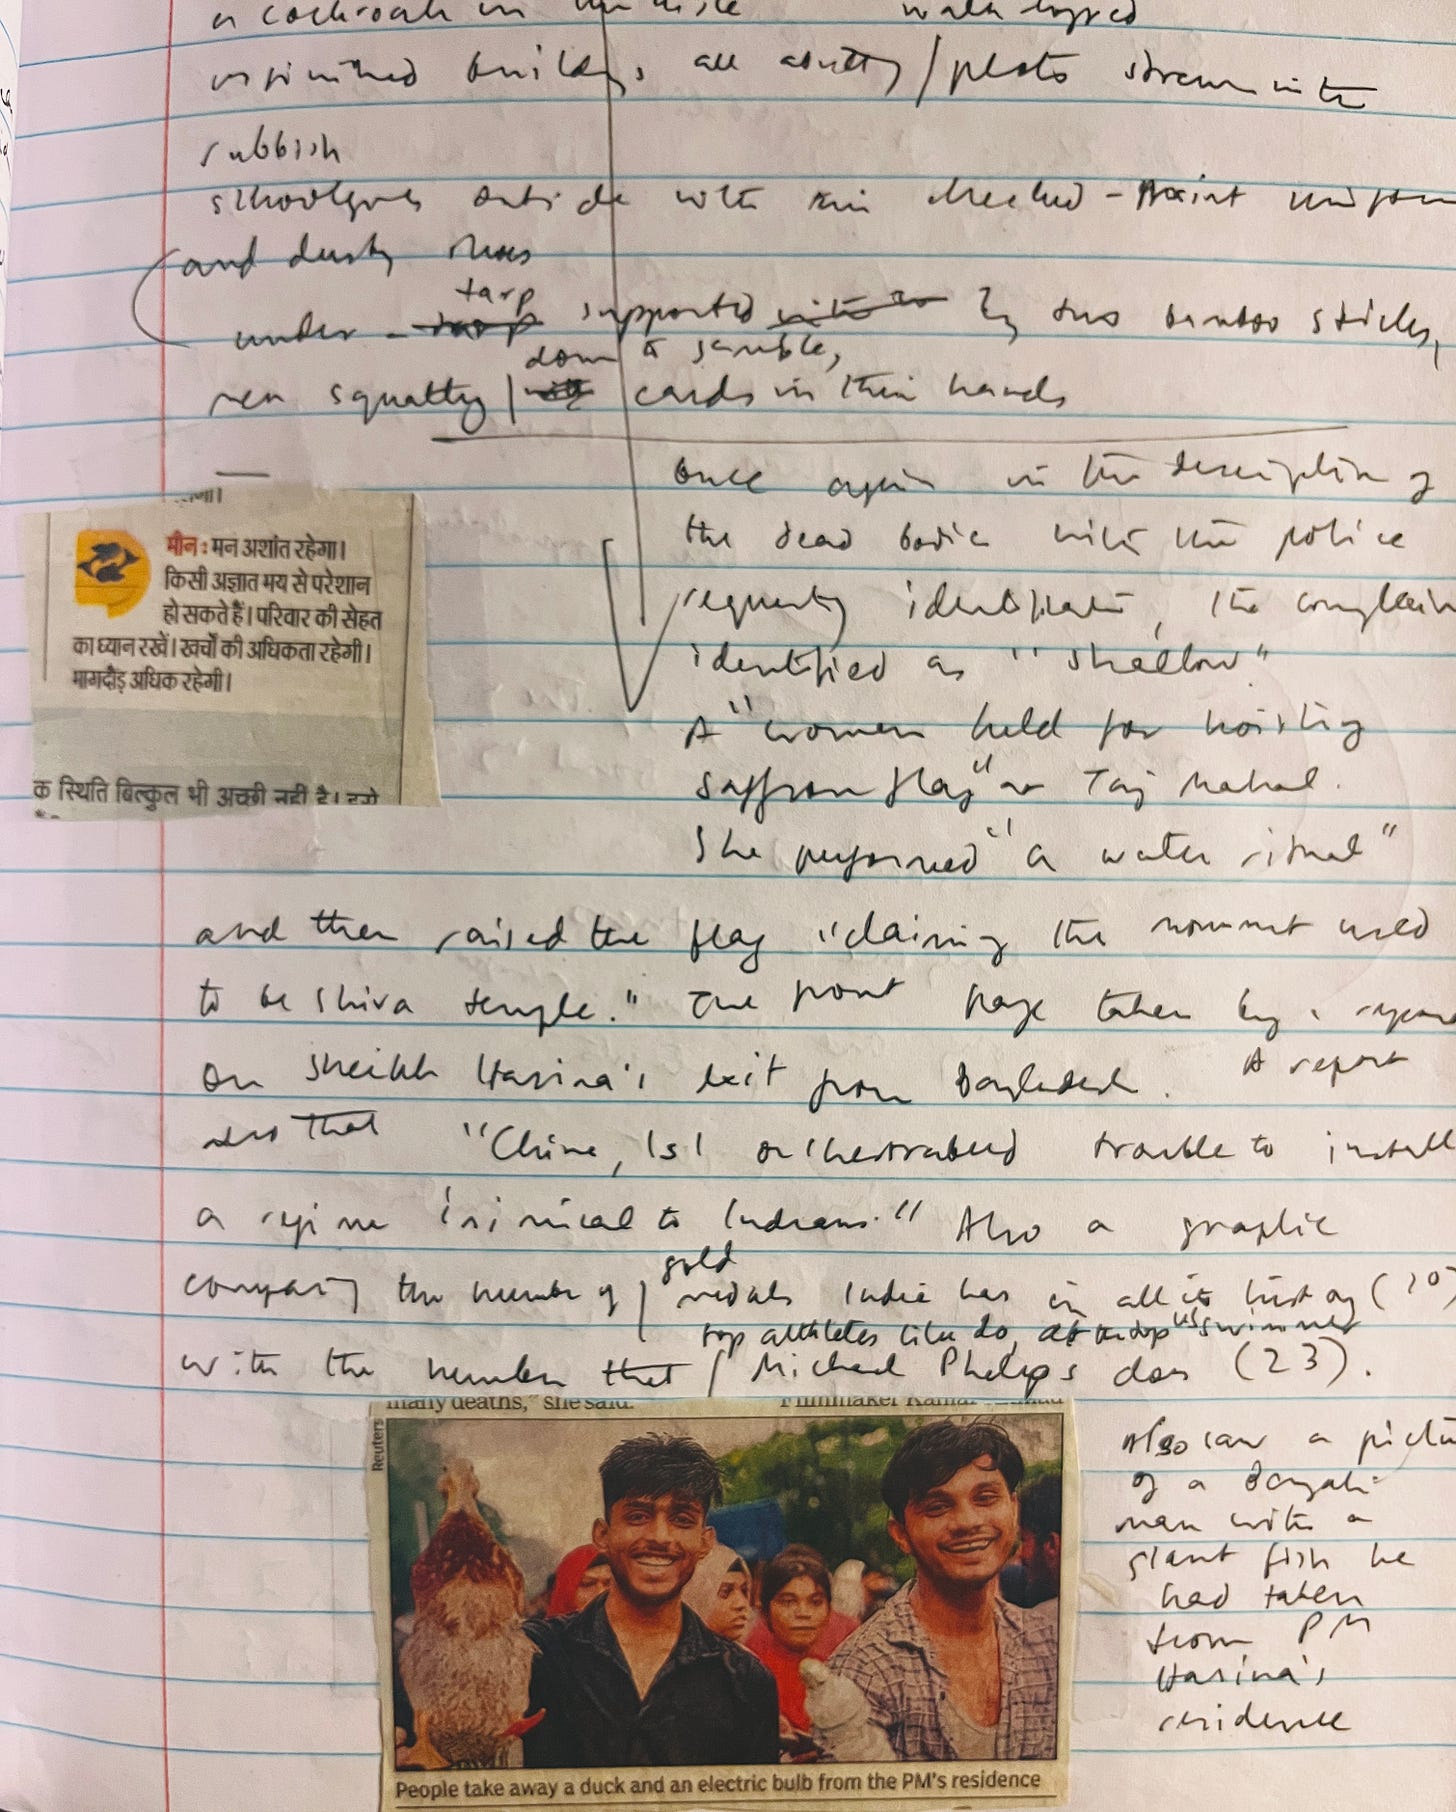 a cockroach in
unfinished buildings all abutting / plots strewn with
rubbish
schoolgirls outside with checked - uniform
and dusty shoes
tarp
under a supported by two bamboo sticks,
down to gamble,
men squatting / cards in their hands
once again in the description of
the dead bodies with the police
requesting identification, the complexion
identified as "shallow"
A "women held for hoisting
saffron flag" at Taj Mahal.
She performed "a water ritual"
and then raised the flag "claiming the monument used
to be Shiva temple." The front page taken by a report
on Sheikh Hasina's exit from Bangladesh. A report
says that "China, ISI orchestrated trouble to install
a regime inimical to Indians." Also a graphic
gold
comparing the number of / medals India has in all its history (10)
top athletes like do, at the top US swimmer
with the number that / Michael Phelps does (23).
मीन : मन अशांत रहेगा।
किसी अज्ञात भय से परेशान
हो सकते हैं। परिवार की सेहत
का ध्यान रखें। खर्चों की अधिकता रहेगी।
भागदौड़ अधिक रहेगी।
क स्थिति बिल्कुल भी अच्छी नहीं है।
many deaths," she said.
Filmmaker Kamar
Reuters
People take away a duck and an electric bulb from the PM's residence
Also saw a picture
of a Bengali
man with a
giant fish he
had taken
from PM
Hasina's
residence